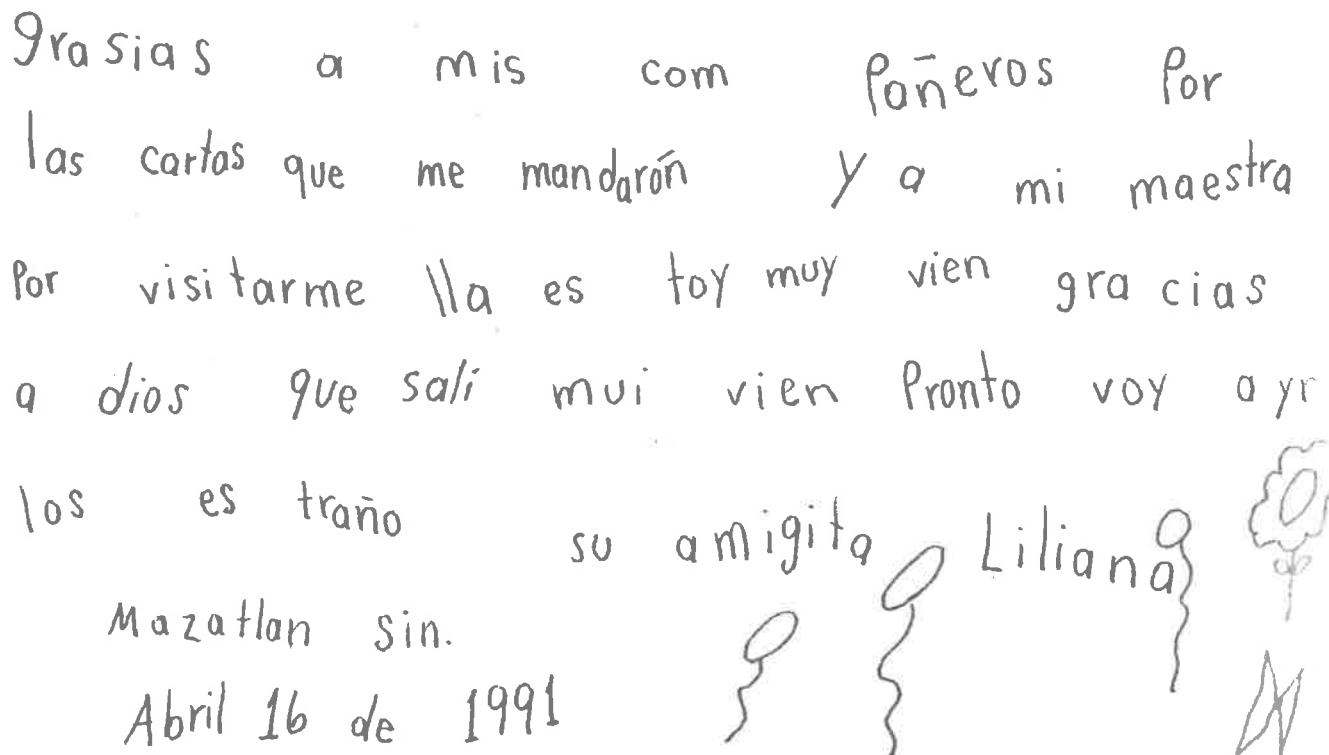 grasias a mis com pañeros Por
las cartas que me mandarón y a mi maestra
Por visitarme lla es toy muy vien gra cias
a dios que salí mui vien Pronto voy a yr
los es traño su amigita Liliana
Mazatlan sin.
Abril 16 de 1991